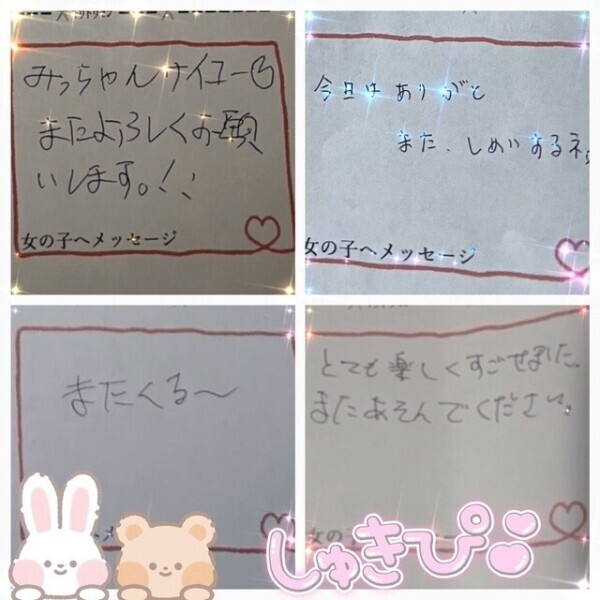 みっちゃんナイスー
またよろしくお願
いします。!!
女の子へメッセージ
今日はありがと
また、しめいするネ。
女の子へメッセージ
またくる〜
メ
とても楽しくすごせました
またあそんでください。
女の
しゅきぴ